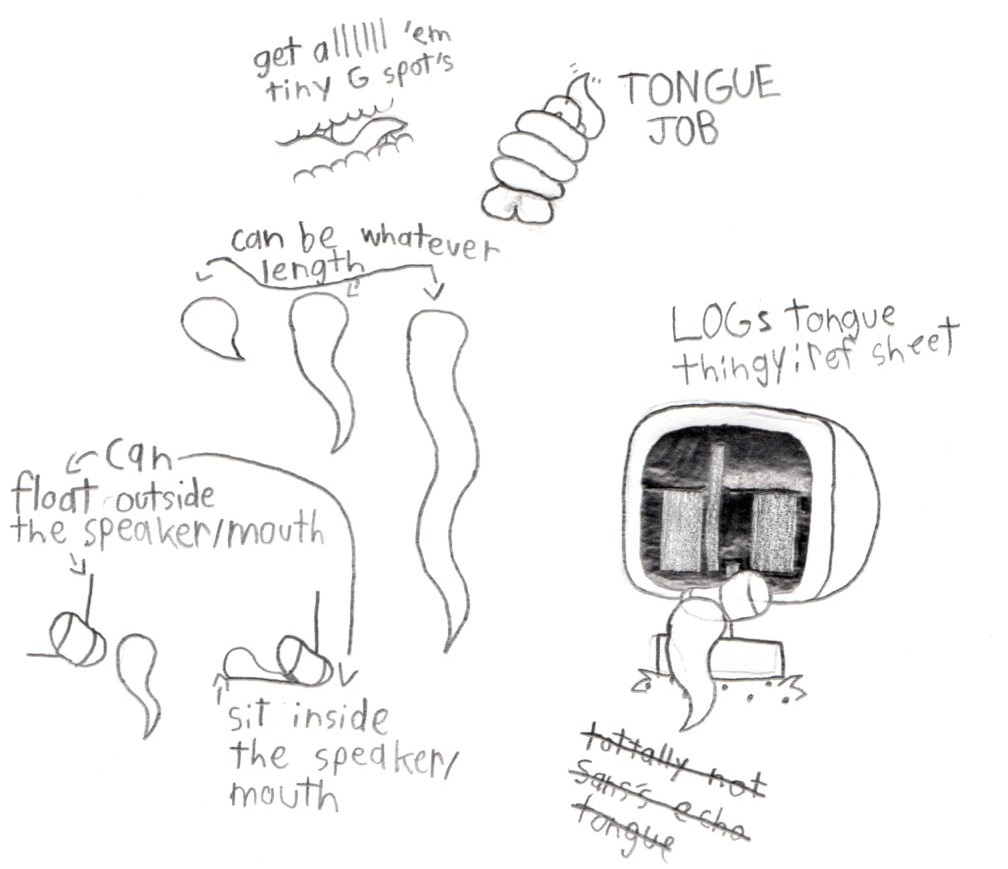 get allllllll 'em
tiny G spot's
TONGUE
JOB
can be whatever
length
LOGs tongue
thingy:ref sheet
can
float outside
the speaker/mouth
sit inside
the speaker/
mouth
tottally not
Sans's echo
tongue